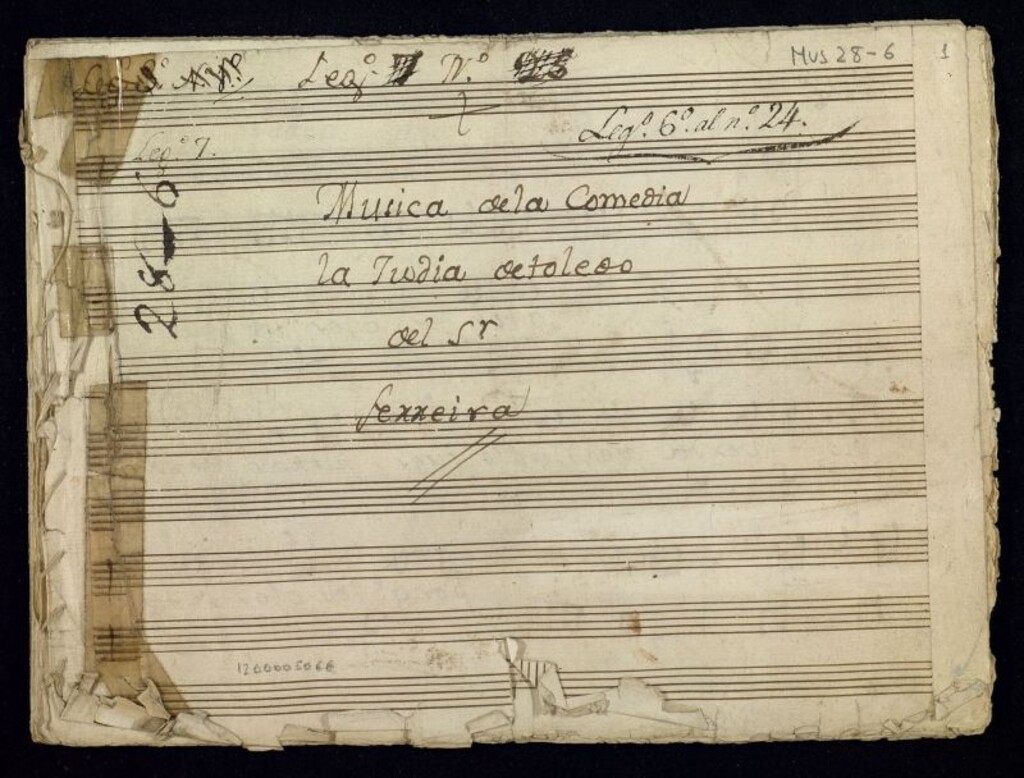 Legº Nº
MUS 28-6
1
Legº. 6º. al nº. 24.
Legº. 7.
28-6
Musica dela Comedia
la Judia detoledo
del Sr
Ferreira
1200005066